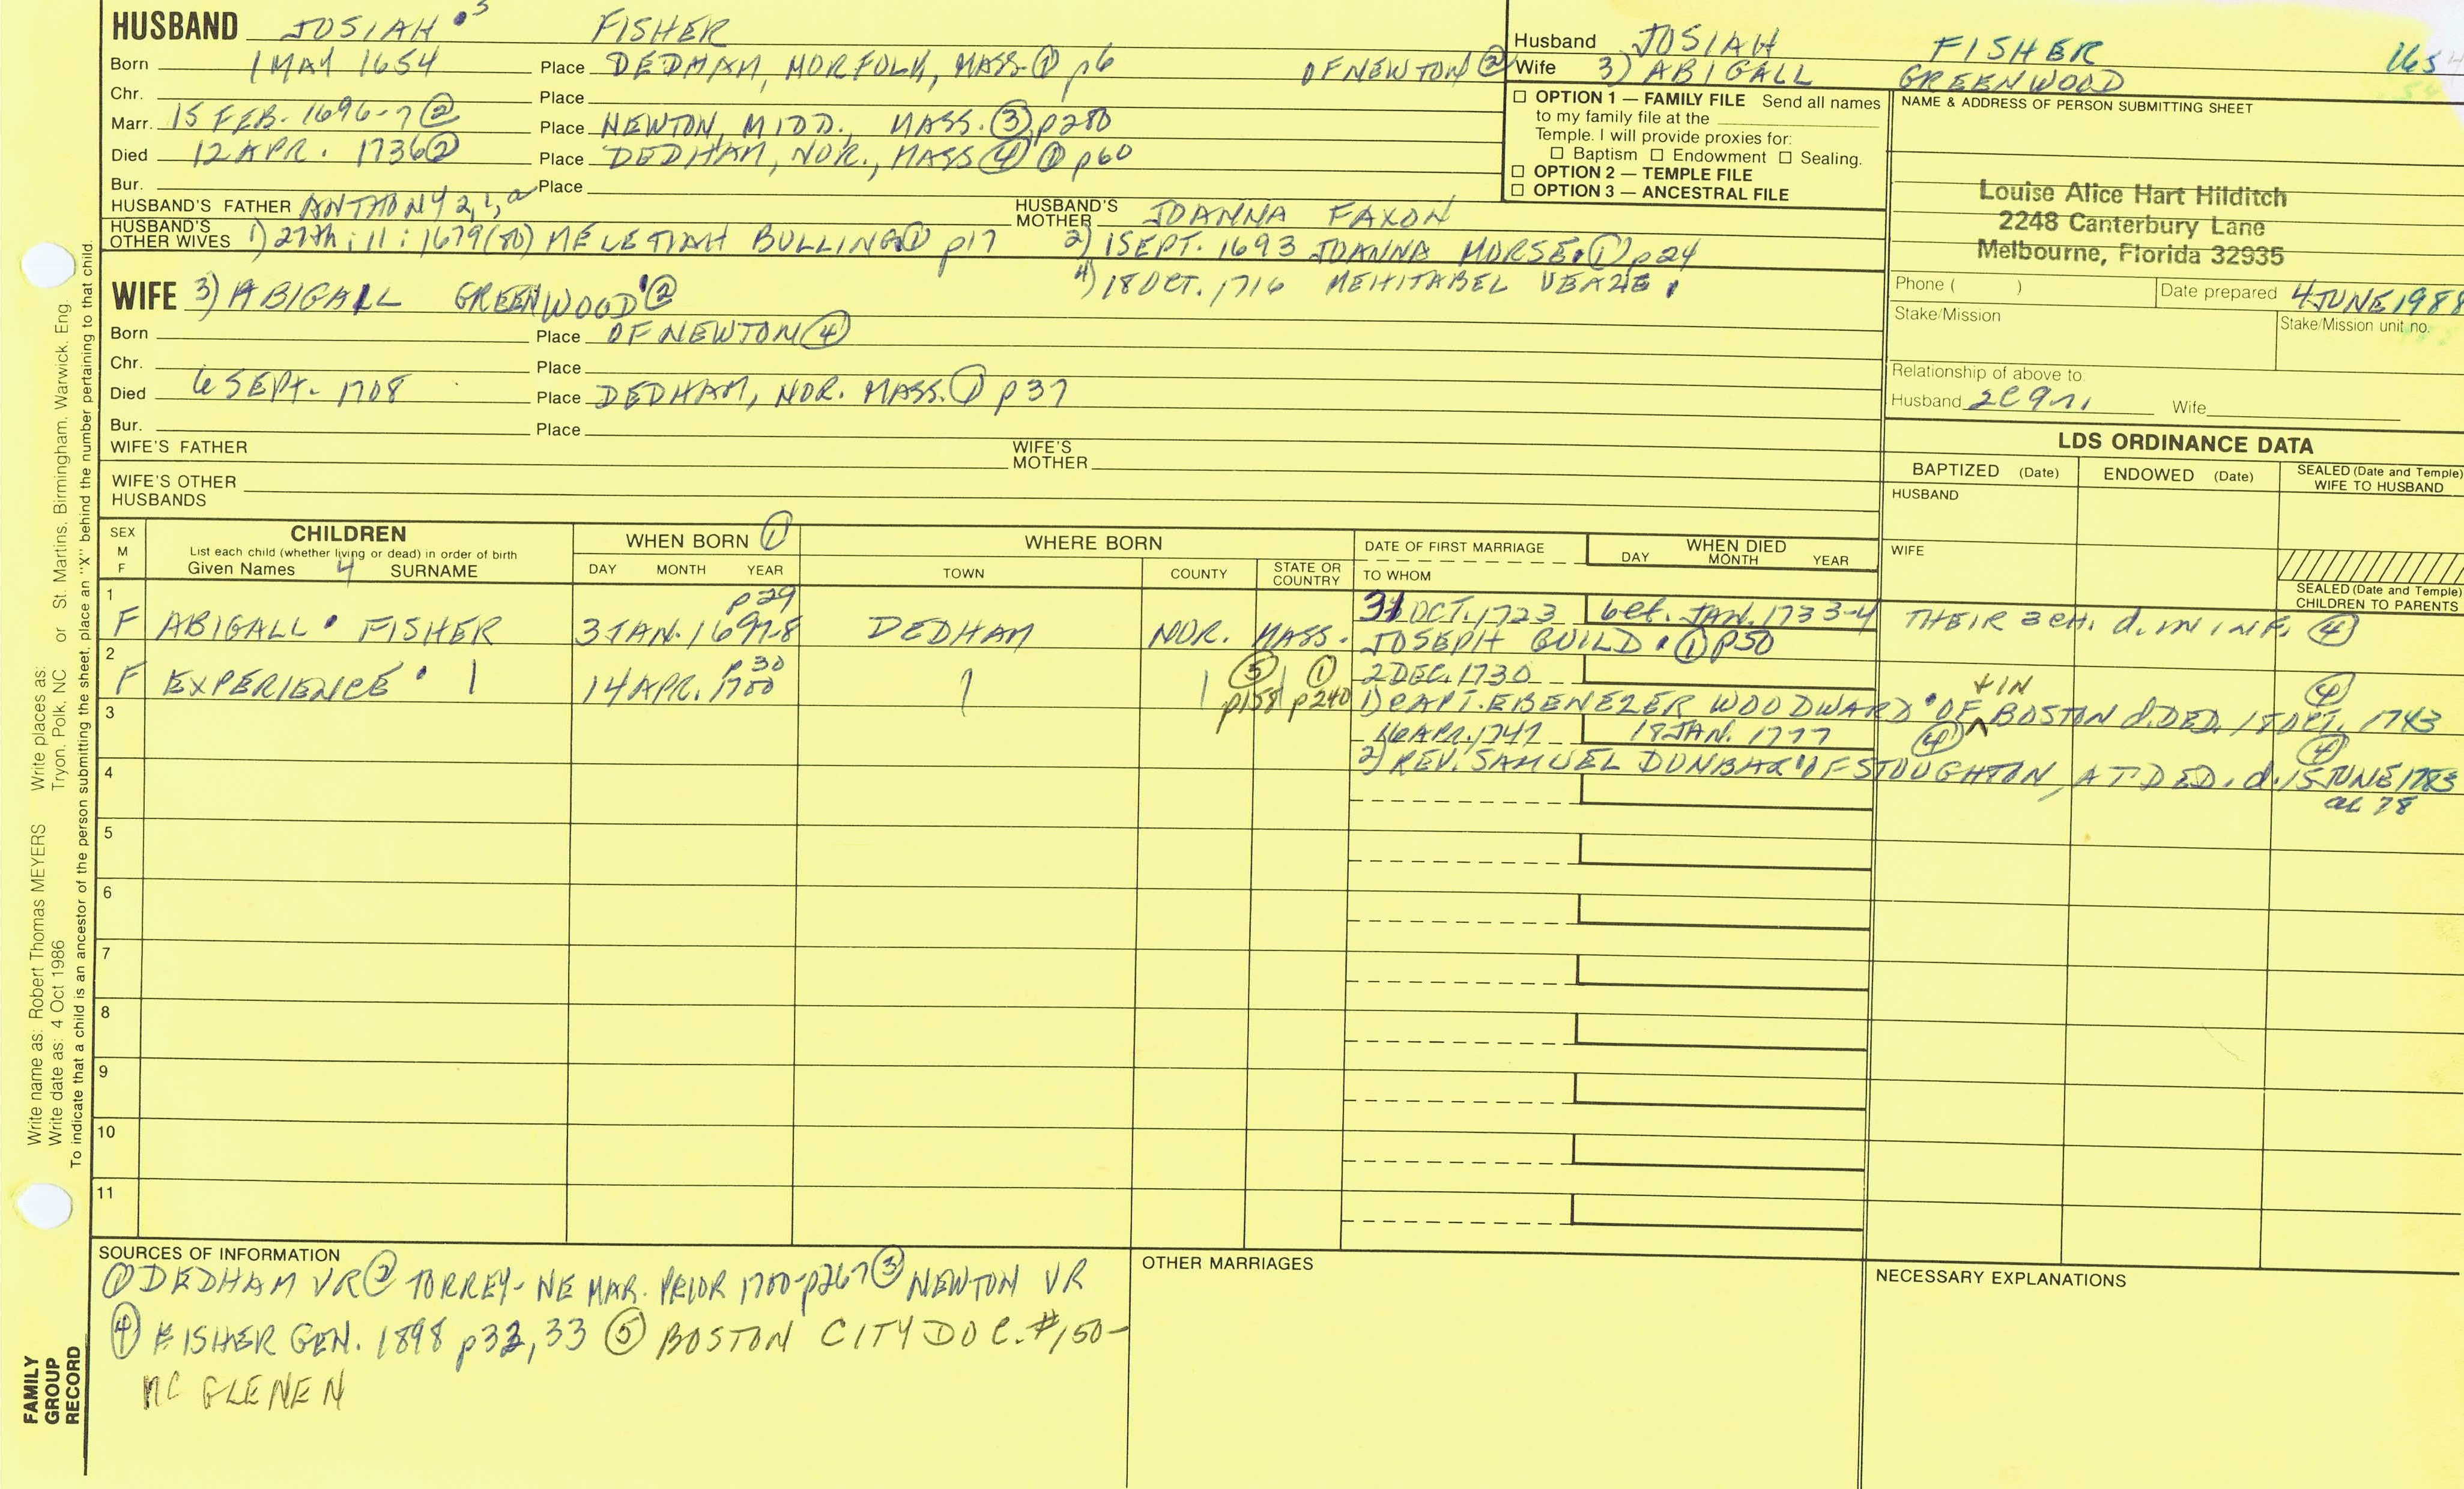 HUSBAND JOSIAH 3 FISHER
Born 1 MAY 1654 Place DEDHAM, NORFOLK, MASS. ① p6 OF NEWTON ②
Chr. Place
Marr. 15 FEB. 1696-7 ② Place NEWTON, MIDD., MASS. ③ p280
Died 12 APR. 1736 ② Place DEDHAM, NOR., MASS ④ ① p60
Bur. Place
HUSBAND'S FATHER ANTHONY 2, 1, a HUSBAND'S MOTHER JOANNA FAXON
HUSBAND'S OTHER WIVES 1) 27th : 11 : 1679(80) MELETIAH BULLING ① p17 2) 1 SEPT. 1693 JOANNA MORSE ① p24
4) 18 OCT. 1716 MEHITABEL VEAZIE
WIFE 3) ABIGALL GREENWOOD ②
Born Place OF NEWTON ④
Chr. Place
Died 6 SEPT. 1708 Place DEDHAM, NOR. MASS. ① p37
Bur. Place
WIFE'S FATHER WIFE'S MOTHER
WIFE'S OTHER HUSBANDS
Husband JOSIAH FISHER 1654
Wife 3) ABIGALL GREENWOOD
☐ OPTION 1 — FAMILY FILE Send all names
to my family file at the
Temple. I will provide proxies for:
☐ Baptism ☐ Endowment ☐ Sealing.
☐ OPTION 2 — TEMPLE FILE
☐ OPTION 3 — ANCESTRAL FILE
NAME & ADDRESS OF PERSON SUBMITTING SHEET
Louise Alice Hart Hilditch
2248 Canterbury Lane
Melbourne, Florida 32935
Phone ( ) Date prepared 4 JUNE 1988
Stake/Mission Stake/Mission unit no.
Relationship of above to:
Husband 2C 9r1 Wife
LDS ORDINANCE DATA
BAPTIZED (Date) ENDOWED (Date) SEALED (Date and Temple) WIFE TO HUSBAND
HUSBAND
WIFE
SEALED (Date and Temple) CHILDREN TO PARENTS
SEX M F
CHILDREN
List each child (whether living or dead) in order of birth
Given Names 4 SURNAME
WHEN BORN ①
DAY MONTH YEAR
WHERE BORN
TOWN COUNTY STATE OR COUNTRY
DATE OF FIRST MARRIAGE
TO WHOM
WHEN DIED
DAY MONTH YEAR
1 p29 31 OCT. 1723 bef. JAN. 1733-4
F ABIGALL FISHER 3 JAN. 1697-8 DEDHAM NOR. MASS. JOSEPH GUILD ① p50 THEIR 3 CH. d. IN INF. ④
2 p30 ⑤ ① 2 DEC. 1730
F EXPERIENCE 14 APR. 1700 p158 p240 1) CAPT. EBENEZER WOODWARD OF + IN BOSTON d. DED. 18 OCT. 1743 ④
3 16 APR. 1747 18 JAN. 1777 ④
2) REV. SAMUEL DUNBAR OF STOUGHTON, AT DED. d. 15 JUNE 1783 ④
ae 78
4
5
6
7
8
9
10
11
SOURCES OF INFORMATION
① DEDHAM VR ② TORREY - NE MAR. PRIOR 1700 - p267 ③ NEWTON VR
④ FISHER GEN. 1898 p32, 33 ⑤ BOSTON CITY DOC. #150 -
MC GLENEN
OTHER MARRIAGES
NECESSARY EXPLANATIONS
Write name as: Robert Thomas MEYERS Write places as: Tryon, Polk, NC or St. Martins, Birmingham, Warwick, Eng.
Write date as: 4 Oct 1986
To indicate that a child is an ancestor of the person submitting the sheet, place an "X" behind the number pertaining to that child.
FAMILY
GROUP
RECORD